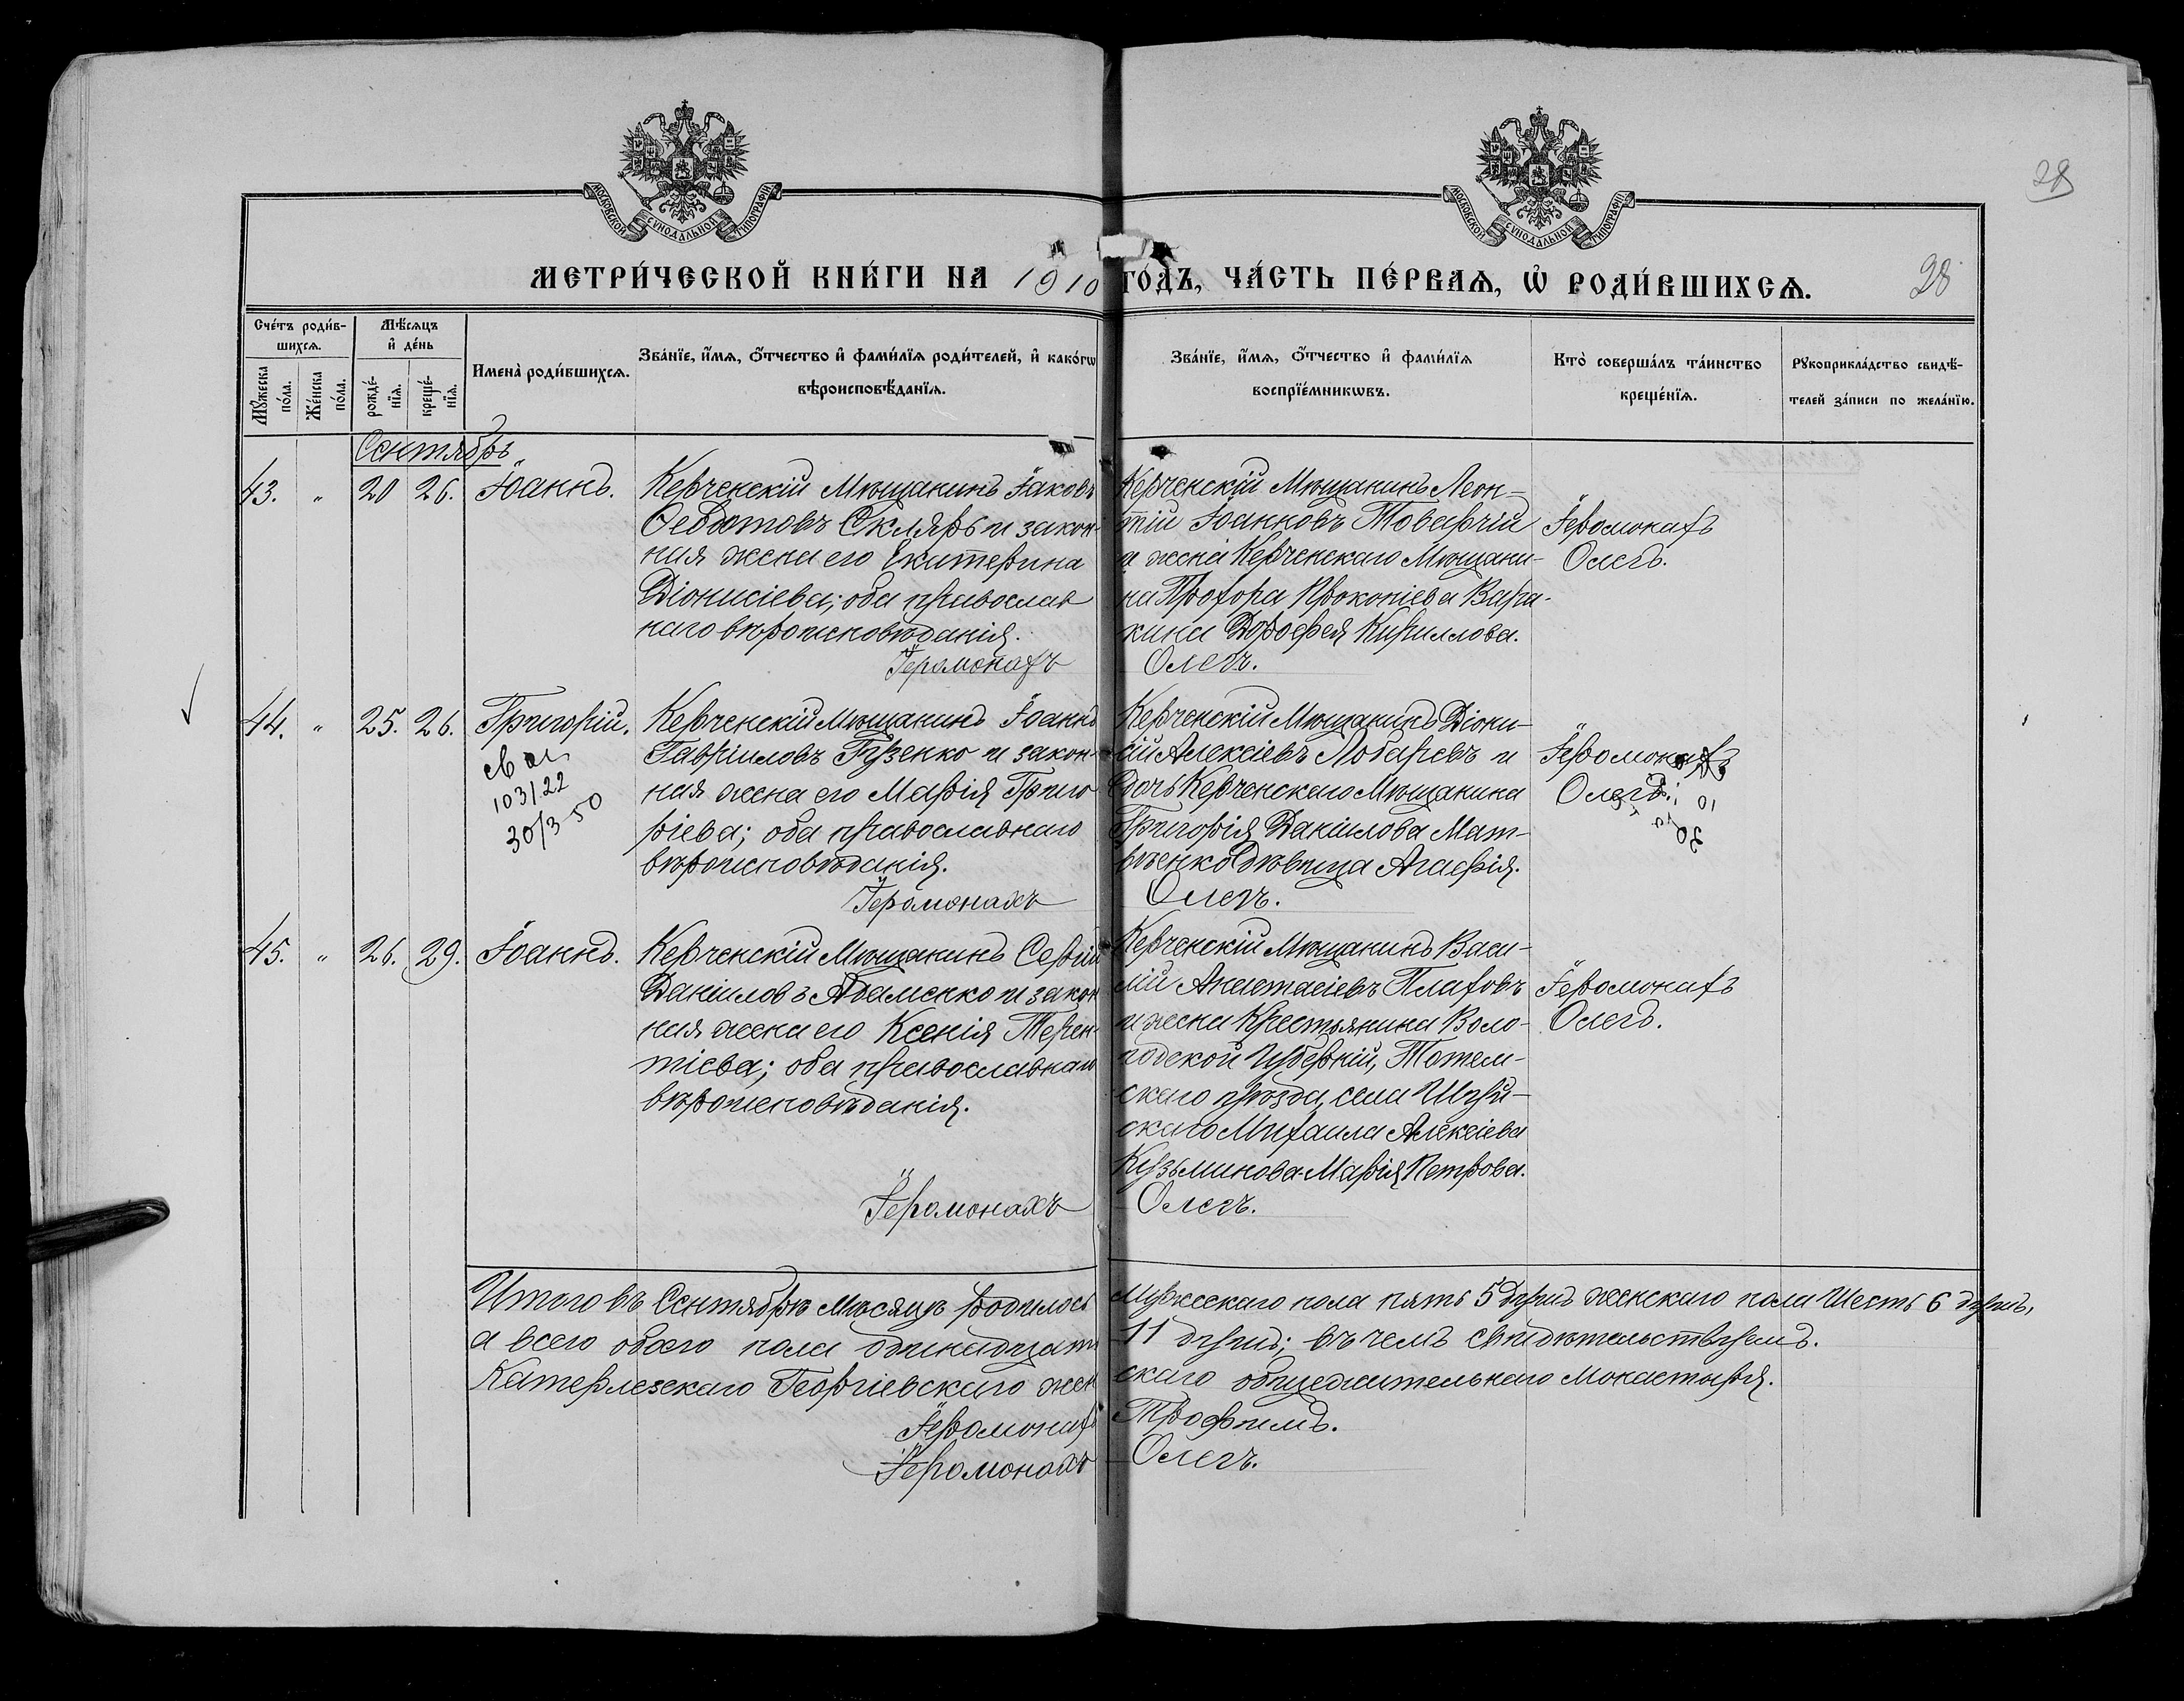 28
МОСКОВСКОЙ СѴНОДАЛЬНОЙ ТИПОГРАФІИ
МОСКОВСКОЙ СѴНОДАЛЬНОЙ ТИПОГРАФІИ
МЕТРИ́ЧЕСКОЙ КНИ́ГИ НА 1910 ГО́ДЪ, ЧА́СТЬ ПЕ́РВАѦ, Ѡ҆ РОДИ́ВШИХСѦ.
28
Сче́тъ роди́в-
шихсѧ.
Мꙋ́жеска
по́ла.
Же́нска
по́ла.
Мѣ́сѧцъ
и҆ де́нь
рожде́-
нїѧ.
креще́-
нїѧ.
Имена̀ роди́вшихсѧ.
Зва́нїе, и҆́мѧ, ѻ҆́тчество и҆ фами́лїѧ роди́телей, и҆ како́гѡ
вѣроисповѣ́данїѧ.
Зва́нїе, и҆́мѧ, ѻ҆́тчество и҆ фами́лїѧ
воспрїе́мникѡвъ.
Кто̀ соверша́лъ та́инство
креще́нїѧ.
Рꙋкоприкла́дство свидѣ́-
телей за́писи по жела́нїю.
Сентябрь
43. " 20 26. Іоаннъ.
Керченскій Мѣщанинъ Іаковъ
Ѳедотовъ Скляръ и закон-
ная жена его Екатерина
Діонисіева; оба православ
наго вѣроисповѣданія.
Іеромонахъ
Керченскій Мѣщанинъ Леон-
тій Іоанновъ Товарчій
и жена Керченскаго Мѣщани-
на Прохора Прокопіева Вара-
кина Дорофея Кириллова.
Олегъ.
Іеромонахъ
Олегъ.
44. " 25. 26. Григорій.
св
103122
30/3-50
Керченскій Мѣщанинъ Іоаннъ
Гавріиловъ Гузенко и закон-
ная жена его Марія Григо
ріева; оба православнаго
вѣроисповѣданія.
Іеромонахъ
Керченскій Мѣщанинъ Діони-
сій Алексіевъ Лобачевъ и
дочь Керченскаго Мѣщанина
Григорія Даніилова Мат-
вѣенко дѣвица Агафія.
Олегъ.
Іеромонахъ
Олегъ.
45. " 26. 29. Іоаннъ.
Керченскій Мѣщанинъ Сергій
Даніиловъ Адаменко и закон
ная жена его Ксенія Терен-
тіева; оба православнаго
вѣроисповѣданія.
Іеромонахъ
Керченскій Мѣщанинъ Васи-
лій Анастасіевъ Плаховъ
и жена Крестьянина Воло-
годской Губерніи, Тотем-
скаго уѣзда, села Шуй-
скаго Михаила Алексіева
Кузьминова Марія Петрова.
Олегъ.
Іеромонахъ
Олегъ.
Итого въ Сентябрѣ Мѣсяцѣ родилось мужескаго пола пять 5 душъ женскаго пола Шесть 6 душъ,
а всего обоего пола одинадцать 11 душъ; въ чемъ свидѣтельствуемъ.
Катерлезскаго Георгіевскаго женскаго общежительнаго Монастыря.
Іеромонахъ Трофимъ.
Іеромонахъ Олегъ.